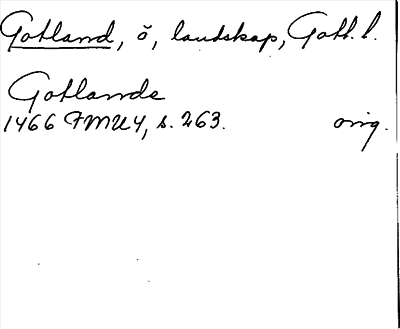 Gotland, ö, landskap, Gotl. l.
Gotlande
1466 FMU 4, s. 263. orig.